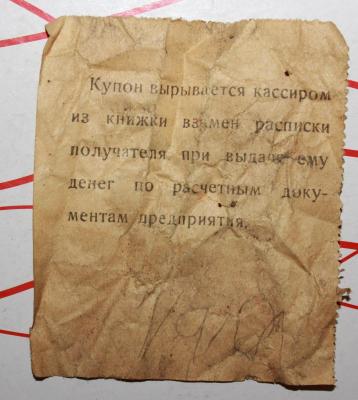 Купон вырывается кассиром
из книжки взамен расписки
получателя при выдаче ему
денег по расчетным доку-
ментам предприятия.